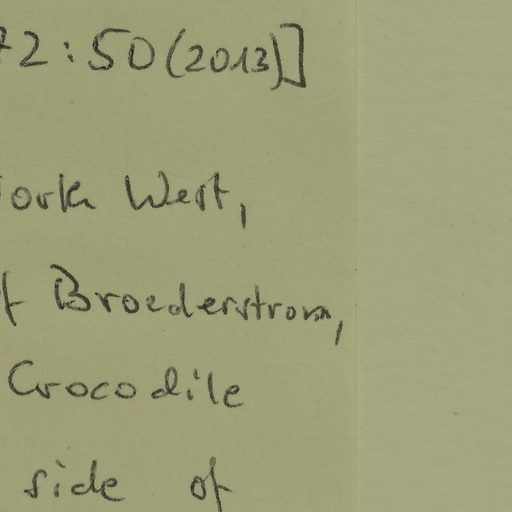 72:50(2013)]
York West,
of Broederstroom,
Crocodile
side of